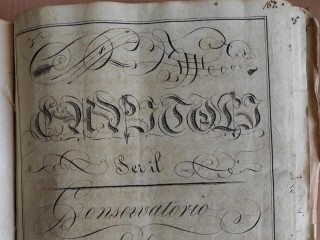 152.
CAPITOLI
Per il
Conservatorio